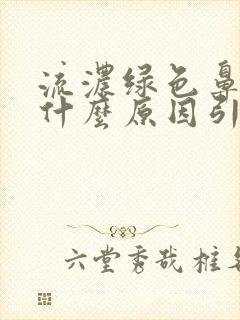 流濃绿色鼻
什麼原因引
六堂秀哉桩